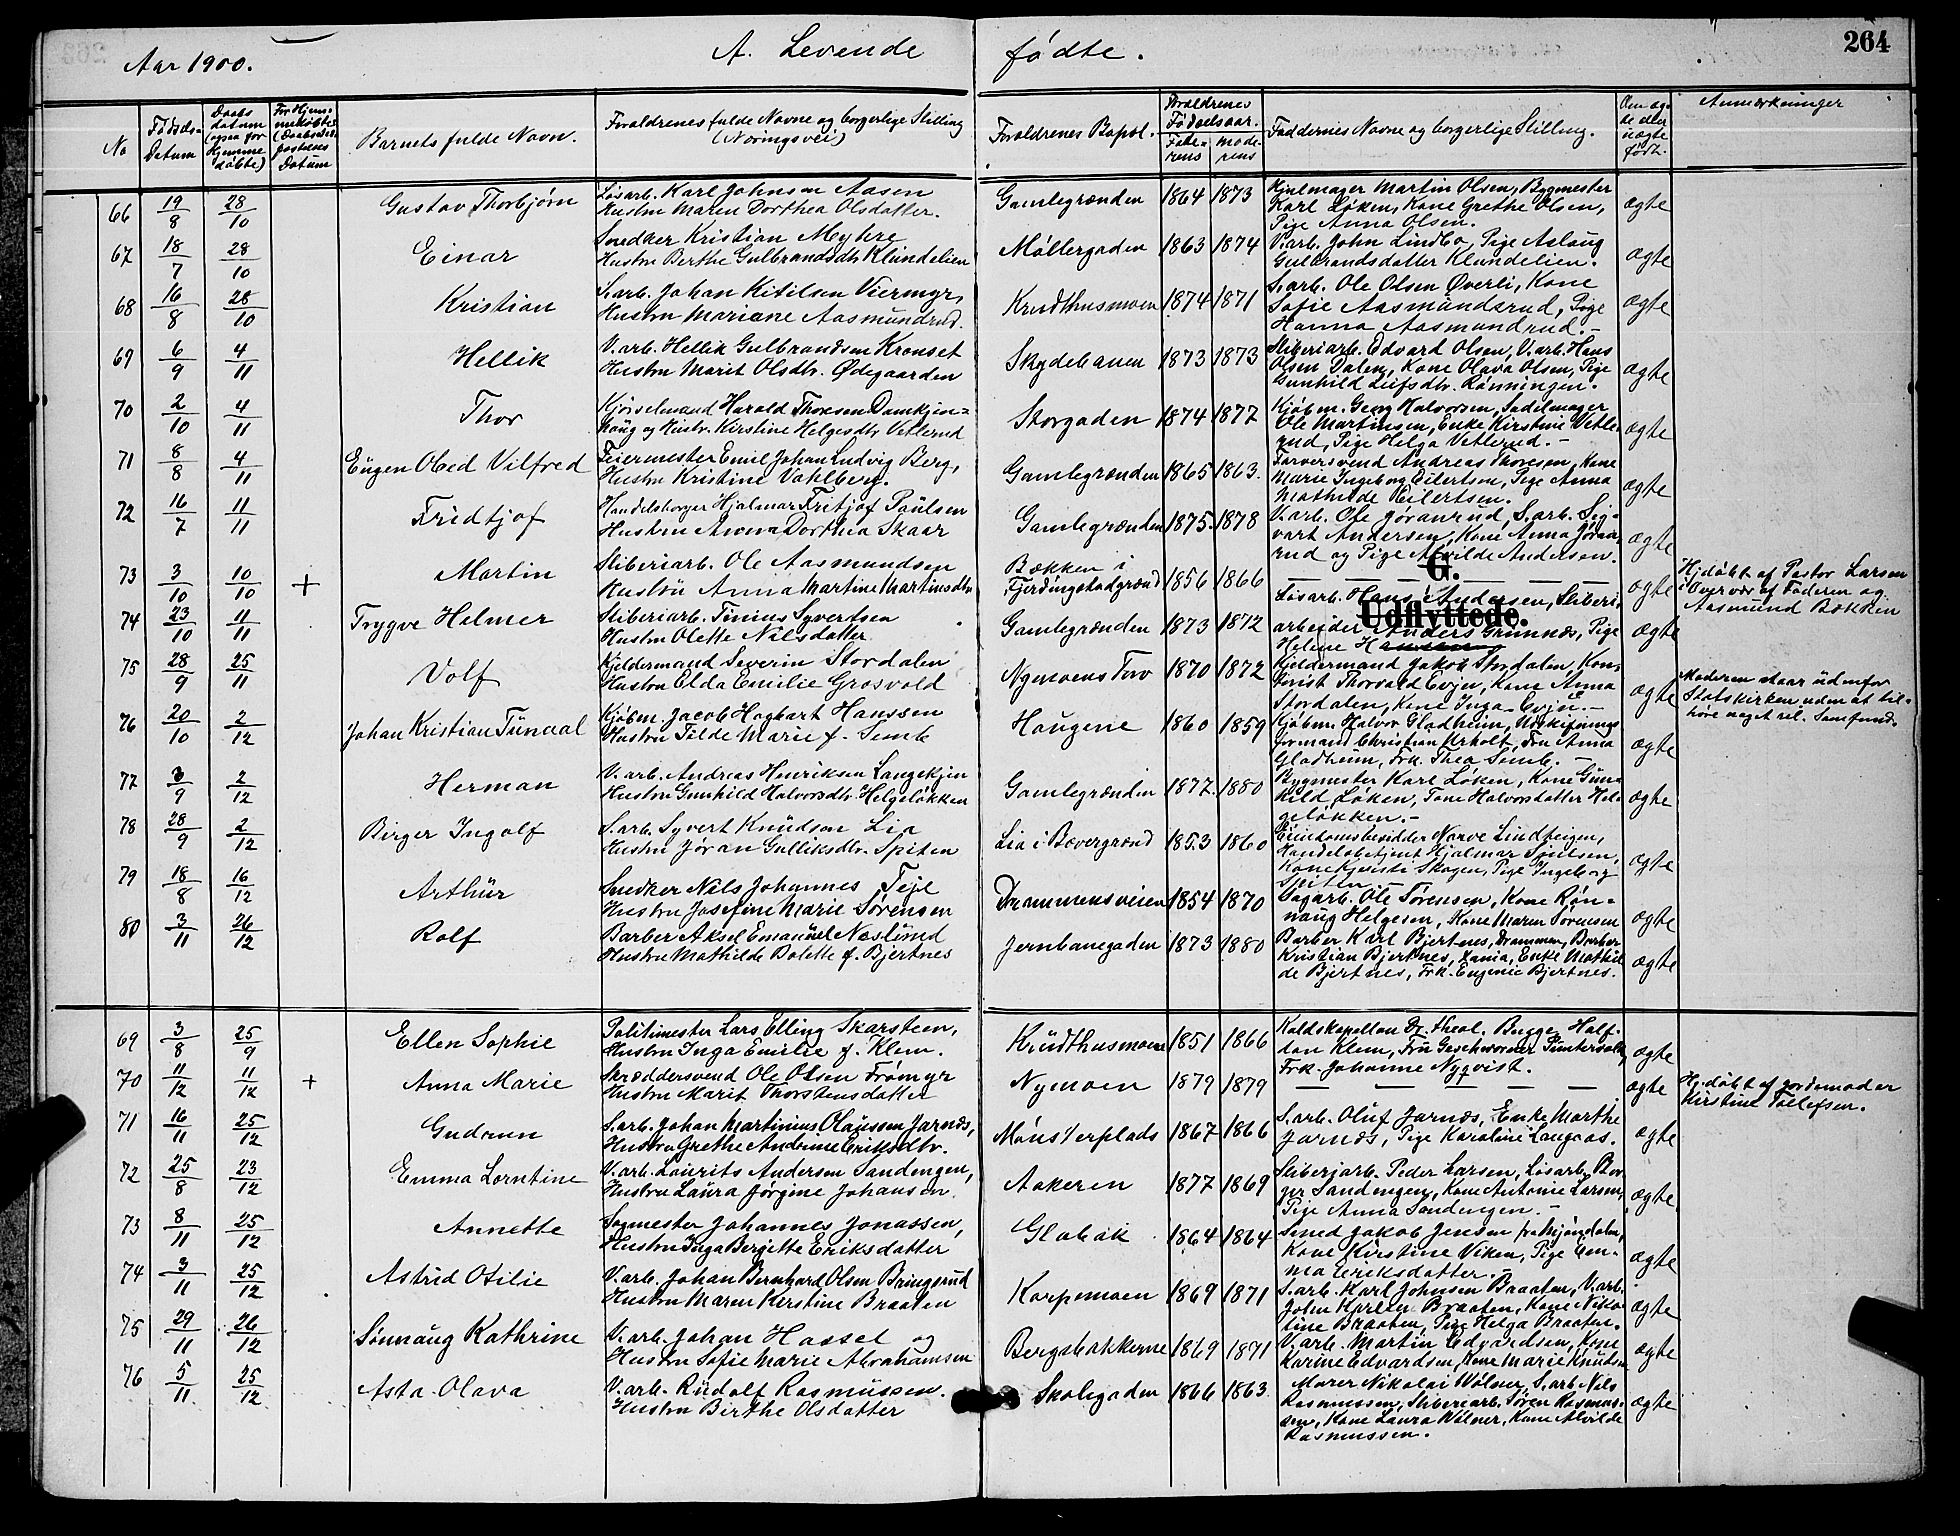 Aar 1900.
A. Levende fødte.
264
No
Fødsels-Datum
Daabsdatum (ogsaa for Hjemmedøbte)
Datum
Barnets fulde Navn.
Forældrenes fulde Navne og borgerlige Stilling (Næringsvei)
Forældrenes Bopæl.
Forældrenes Fødselsaar.
Faderens
Moderens
Faddernes Navne og borgerlige Stilling.
Om ægte eller uægte født.
Anmærkninger
66 19/8 28/10 Gustav Thorbjørn
Løsarb. Karl Johnsen Aasen
Hustru Maren Dorthea Olsdatter.
Gamlegrænden 1864 1873
Hjulmager Martin Olsen, Bygmester
Karl Løken, Kone Grethe Olsen,
Pige Anna Olsen.
ægte
67 18/7 28/10 Einar
Snedker Kristian Myhre
Hustru Berthe Gulbrandsdtr. Klundelien
Møllergaden 1863 1874
V.arb. John Lindbo, Pige Aslaug
Gulbrandsdatter Klundelien.
ægte
68 16/8 28/10 Kristian
S.arb. Johan Kitilsen Viermyr,
Hustru Mariane Aasmundrud.
Krudthusmoen 1874 1871
S.arb. Ole Olsen Øverli, Kone
Sofie Aasmundsrud, Pige
Hanna Aasmundrud. -
ægte
69 6/9 4/11 Hellik
V.arb. Hellik Gulbrandsen Kronset
Hustru Marit Olsdtr. Ødegaarden
Skydebanen 1873 1873
Sliberiarb. Edvard Olsen, V.arb. Hans
Olsen Dalen, Kone Olava Olsen, Pige
Gunhild Leifsdtr. Rønningen.
ægte
70 2/10 4/11 Thor
Kjørselmand Harald Thoresen Damkjen=
haug og Hustr. Kirstine Helgesdtr. Vetterud
Storgaden 1874 1877
Kjøbm. Georg Halvorsen, Sadelmager
Ole Martinsen, Enke Kirstine Vette-
rud, Pige Helga Vetterud. -
ægte
71 8/8 4/11 Eugen Obed Vilfred
Feiermester Emil Johan Ludvig Berg,
Hustru Kristine Vahlberg.
Gamlegrænden 1865 1863.
Farversvend Andreas Thoresen, Kone
Marie Ingeborg Eilertsen, Pige Anna
Mathilde Eilertsen.
ægte
72 16/7 11/11 Fridtjof
Handelsborger Hjalmar Fritjof Paulsen
Hustru Anna Dorthea Skaar
Gamlegrænden 1875. 1878
V.arb. Ole Jøranrud, S.arb. Sig-
vart Andersen, Kone Anna Jøran
rud og Pige Alvilde Andersen.
ægte
73 3/10 10/10 + Martin
Sliberiarb. Ole Aasmundsen
Hustru Anna Martine Martinsdtr.
Bækken i
Fjerdingstadgrænd 1856 1866
ægte
Hj.døbt af Pastor Larsen
i Overvær af Faderen og
Aasmund Bækken
G.
Udflyttede.
74 23/10 11/11 Trygve Helmer
Sliberiarb. Tinius Syvertsen
Hustru Olette Nilsdatter
Gamlegrænden 1873 1872
Løsarb. Hans Andersen, Sliberi,
arbeider Anders Grumnæs, Pige
Helene Hansen
ægte
75 28/9 25/11 Volf
Kjeldermand Severin Stordalen
Hustru Elda Emilie Grosvold
Nymoens Torv 1870 1872
Kjeldermand Jakob Stordalen, Kon-
torist Thorvald Evju, Kone Anna
Stordalen, Kone Inga Evju. -
ægte
Moderen staar udenfor
Statskirken uden at til-
høre noget rel. Samfund.
76 20/10 2/12 Johan Kristian Tunaal
Kjøbm. Jacob Hagbart Hanssen
Hustru Tilde Marie f. Semb
Haugene 1860 1859
Kjøbm. Halvor Gladheim, Udskiftnings
formand Christian Urholt, Fru Anna
Gladheim, Frk. Thea Semb. -
ægte
77 3/9 2/12 Herman
V.arb. Andreas Henriksen Langekjen
Hustru Gunhild Halvorsdtr. Helgeløkken
Gamlegrænden 1877. 1880
Bygmester Karl Løken, Kone Gun-
hild Løken, Tone Halvorsdatter Hel-
geløkken. -
ægte
78 28/9 2/12 Birger Ingolf
S.arb. Syvert Knudsen Lia
Hustru Jøran Gulliksdtr. Spiten
Lia i Bævergrænd 1853 1860
Eiendomsbesidder Narve Lindteigen,
Handelsbetjent Hjalmar Poulsen,
Kone Kjersti Skogen, Pige Ingeborg
Spiten -
ægte
79 18/8 16/12 Arthur
Snedker Nils Johannes Teje
Hustru Josefine Marie Sørensen
Drammensveien 1854 1870
Sagarb. Ole Sørensen, Kone Røn-
naug Helgesen, Kone Maren Sørensen
ægte
80 3/11 26/12 Rolf
Barber Aksel Emanuel Næslund
Hustru Mathilde Bolette f. Bjertnes
Jernbanegaden 1873 1880
Barber Karl Bjertnes, Drammen, Barber
Kristian Bjertnes, Xania, Enke Mathil
de Bjertnes, Frk. Eugenie Bjertnes.
ægte
69 3/8 25/9 Ellen Sophie
Politimester Lars Elling Skarsteen,
Hustru Inga Emilie f. Klem.
Krudthusmoen 1851 1866
Kaldskapellan Dr. theol. Bugge, Half-
dan Klem, Fru Geschworner Püntervold,
Frk. Johanne Nyqvist.
ægte
70 11/12 11/12 + Anna Marie
Skræddersvend Ole Olsen Frømyr
Hustru Marit Thorstensdatter
Nymoen 1879 1879
ægte
Hj.døbt af Jordemoder
Kirstine Tollefsen.
71 16/11 25/12 Gudrun
S.arb. Johan Martinius Olaussen Jarnæs,
Hustru Grethe Andrine Eriksdtr.
Møns'terplads 1867 1866
S.arb. Oluf Jarnæs, Enke Marthe
Jarnæs, Pige Karoline Langaas.
ægte
72 25/8 23/12 Emma Lorntine
V.arb. Laurits Andersen Sandengen,
Hustru Laura Jørgine Johansen.
Aakeren 1877 1869
Sliberiarb. Peder Larsen, Løsarb. Bir
ger Sandengen, Kone Antonie Larsen,
Pige Anna Sandengen. -
ægte
73 8/11 25/12 Annette
Sagmester Johannes Jonassen,
Hustru Inga Bergitte Eriksdatter
Glabak 1864 1864
Smed Jakob Jensen fra Mjøndalen,
Kone Kirstine Viken, Pige Em-
ma Eriksdatter. -
ægte
74 3/11 25/12 Astrid Otilie
V.arb. Johan Bernhard Olsen Bringerud
Hustru Maren Kerstine Braaten
Korpemoen 1869 1871
S.arb. Karl Johnsen Braaten, V.arb.
John Karlsen Braaten, Kone Niko-
line Braaten, Pige Helga Braaten.
ægte
75 29/11 26/12 Sønnaug Kathrine
V.arb. Johan Hassel og
Hustru Sofie Marie Abrahamsen
Bergsbakkerne 1869 1871
V.arb. Martin Edvardsen, Kone
Karine Edvardsen, Kone Marie Knudsen
ægte
76 5/11 25/12 Asta Olava
V.arb. Rudolf Rasmussen.
Hustru Birthe Olsdatter
Skolegaden 1866 1863
Murer Nikolai Wølner, S.arb. Nils
Rasmussen, Sliberiarb. Søren Rasmus-
sen, Kone Laura Wølner, Kone Alvilde
Rasmussen.
ægte